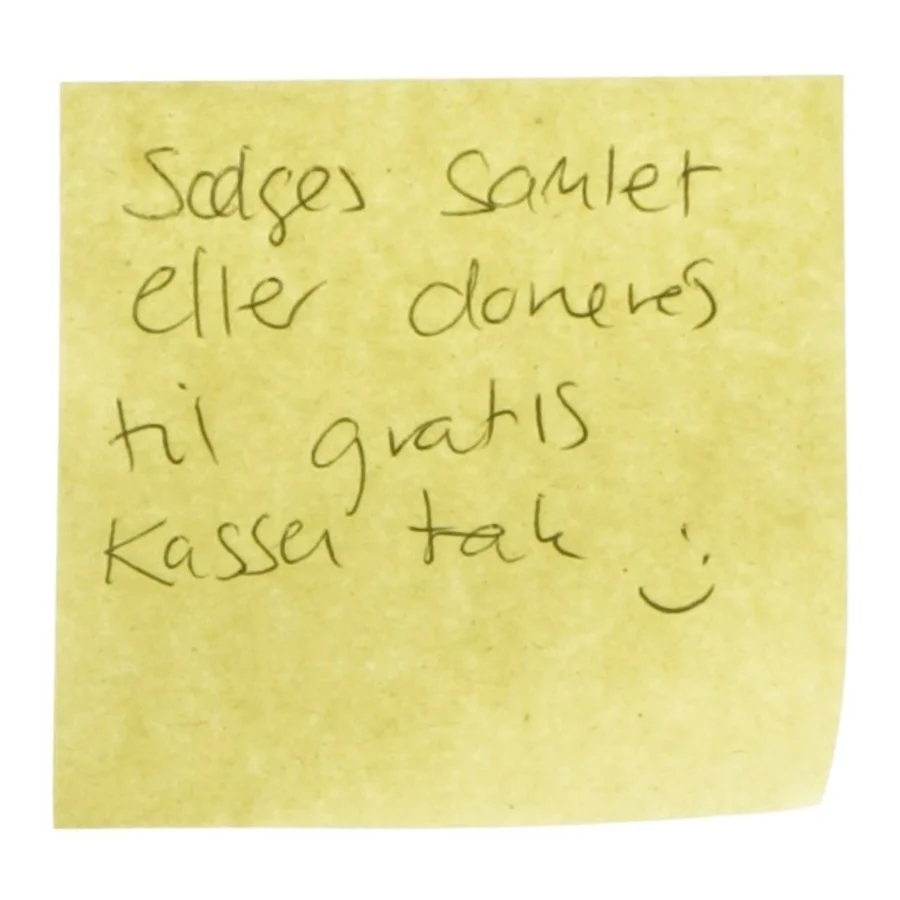 Sælges samlet
eller doneres
til gratis
Kassen tak :)